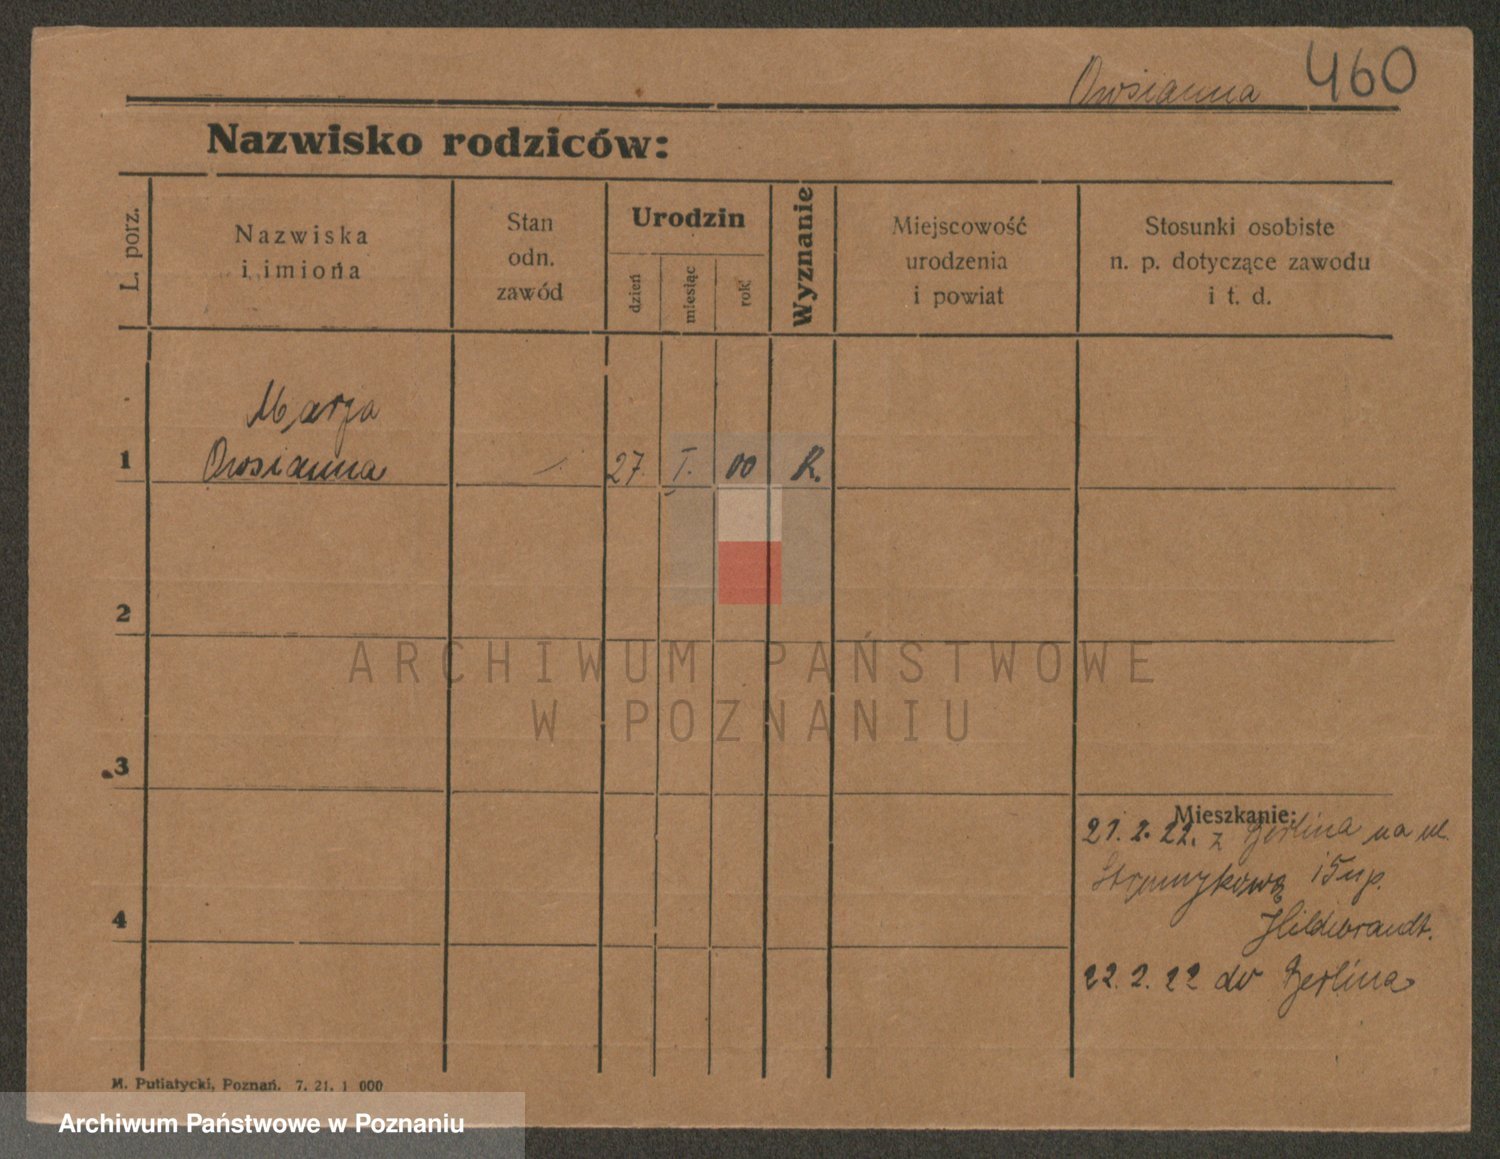 Owsianna 460
Nazwisko rodziców:
L. porz.
Nazwiska
i imiona
Stan
odn.
zawód
Urodzin
dzień
miesiąc
rok
Wyznanie
Miejscowość
urodzenia
i powiat
Stosunki osobiste
n. p. dotyczące zawodu
i t. d.
Marja
1 Owsianna 27. I. 00 R.
2
3
4
Mieszkanie:
21.2.22. z Berlina na ul.
Strumykową 15 u p.
Hildebrandt.
22.2.22 do Berlina
M. Putiatycki, Poznań. 7. 21. 1 000
ARCHIWUM PAŃSTWOWE
W POZNANIU
Archiwum Państwowe w Poznaniu